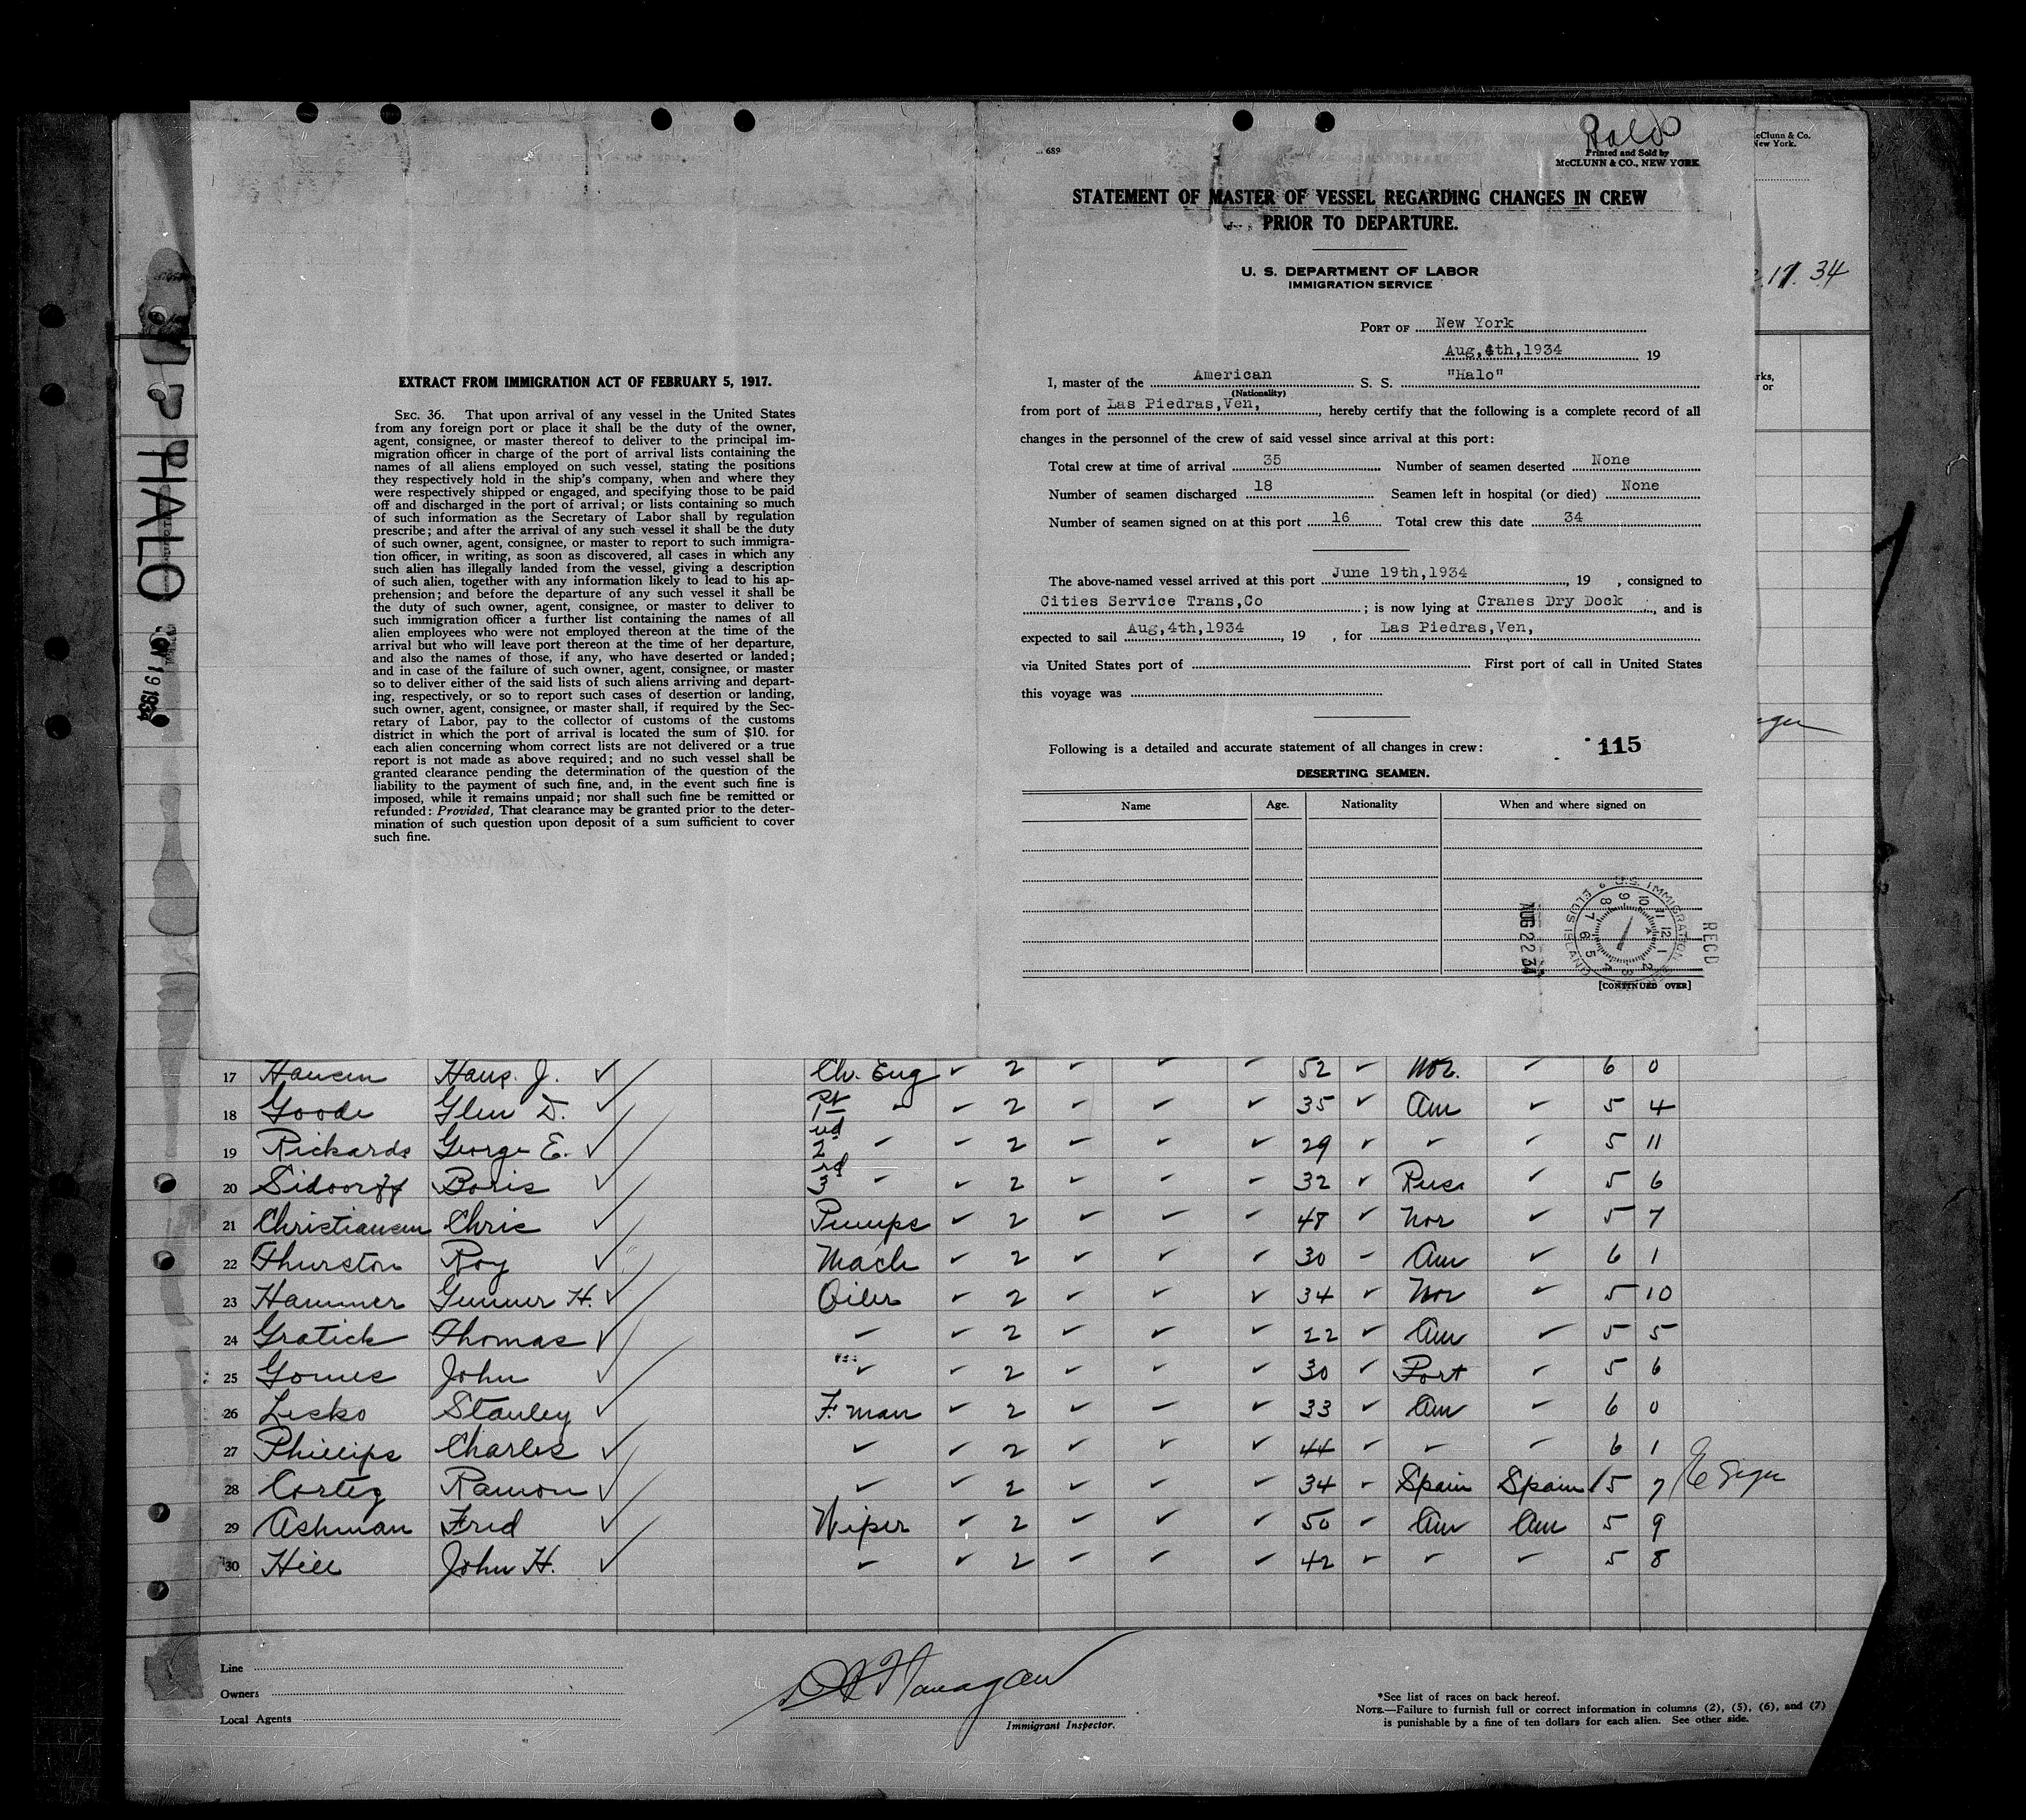 Halo
689
Printed and Sold by
McCLUNN & CO., NEW YORK
STATEMENT OF MASTER OF VESSEL REGARDING CHANGES IN CREW
PRIOR TO DEPARTURE.
U. S. DEPARTMENT OF LABOR
IMMIGRATION SERVICE
PORT OF New York
Aug,4th,1934 19
I, master of the American S. S. "Halo"
(Nationality)
from port of Las Piedras,Ven, , hereby certify that the following is a complete record of all
changes in the personnel of the crew of said vessel since arrival at this port:
Total crew at time of arrival 35 Number of seamen deserted None
Number of seamen discharged 18 Seamen left in hospital (or died) None
Number of seamen signed on at this port 16 Total crew this date 34
The above-named vessel arrived at this port June 19th,1934 , 19 , consigned to
Cities Service Trans,Co ; is now lying at Cranes Dry Dock , and is
expected to sail Aug,4th,1934 , 19 , for Las Piedras,Ven,
via United States port of First port of call in United States
this voyage was
Following is a detailed and accurate statement of all changes in crew: 115
DESERTING SEAMEN.
Name Age. Nationality When and where signed on
REC'D
U.S. IMMIGRATION
ELLIS ISLAND
AUG 22 34
[CONTINUED OVER]
EXTRACT FROM IMMIGRATION ACT OF FEBRUARY 5, 1917.
SEC. 36. That upon arrival of any vessel in the United States
from any foreign port or place it shall be the duty of the owner,
agent, consignee, or master thereof to deliver to the principal im-
migration officer in charge of the port of arrival lists containing the
names of all aliens employed on such vessel, stating the positions
they respectively hold in the ship's company, when and where they
were respectively shipped or engaged, and specifying those to be paid
off and discharged in the port of arrival; or lists containing so much
of such information as the Secretary of Labor shall by regulation
prescribe; and after the arrival of any such vessel it shall be the duty
of such owner, agent, consignee, or master to report to such immigra-
tion officer, in writing, as soon as discovered, all cases in which any
such alien has illegally landed from the vessel, giving a description
of such alien, together with any information likely to lead to his ap-
prehension; and before the departure of any such vessel it shall be
the duty of such owner, agent, consignee, or master to deliver to
such immigration officer a further list containing the names of all
alien employees who were not employed thereon at the time of the
arrival but who will leave port thereon at the time of her departure,
and also the names of those, if any, who have deserted or landed;
and in case of the failure of such owner, agent, consignee, or master
so to deliver either of the said lists of such aliens arriving and depart-
ing, respectively, or so to report such cases of desertion or landing,
such owner, agent, consignee, or master shall, if required by the Sec-
retary of Labor, pay to the collector of customs of the customs
district in which the port of arrival is located the sum of $10. for
each alien concerning whom correct lists are not delivered or a true
report is not made as above required; and no such vessel shall be
granted clearance pending the determination of the question of the
liability to the payment of such fine, and, in the event such fine is
imposed, while it remains unpaid; nor shall such fine be remitted or
refunded: Provided, That clearance may be granted prior to the deter-
mination of such question upon deposit of a sum sufficient to cover
such fine.
McClunn & Co.
New York.
17. 34
HALO
19 1934
17 Hansen Hans. J. ✓ Ch. Eng ✓ 2 ✓ ✓ ✓ 52 ✓ Nor. ✓ 6 0
18 Goode Glen D. ✓ 1st " ✓ 2 ✓ ✓ ✓ 35 ✓ Am ✓ 5 4
19 Rickards George E. ✓ 2nd " ✓ 2 ✓ ✓ ✓ 29 ✓ ✓ ✓ 5 11
20 Sidoorff Boris ✓ 3rd " ✓ 2 ✓ ✓ ✓ 32 ✓ Rus. ✓ 5 6
21 Christiansen Chris ✓ Pumps ✓ 2 ✓ ✓ ✓ 48 ✓ Nor ✓ 5 7
22 Thurston Roy ✓ Mach ✓ 2 ✓ ✓ ✓ 30 ✓ Am ✓ 6 1
23 Hammer Gunner H. ✓ Oiler ✓ 2 ✓ ✓ ✓ 34 ✓ Nor ✓ 5 10
24 Gratick Thomas ✓ ✓ ✓ 2 ✓ ✓ ✓ 22 ✓ Am ✓ 5 5
25 Gomes John ✓ ✓ ✓ 2 ✓ ✓ ✓ 30 ✓ Port ✓ 5 6
26 Lesko Stanley ✓ F. man ✓ 2 ✓ ✓ ✓ 33 ✓ Am ✓ 6 0
27 Phillips Charles ✓ ✓ ✓ 2 ✓ ✓ ✓ 44 ✓ ✓ ✓ 6 1
28 Cortez Ramon ✓ ✓ ✓ 2 ✓ ✓ ✓ 34 ✓ Spain Spain 5 7
29 Ashman Fred ✓ Wiper ✓ 2 ✓ ✓ ✓ 50 ✓ Am Am 5 9
30 Hill John H. ✓ ✓ ✓ 2 ✓ ✓ ✓ 42 ✓ ✓ ✓ 5 8
Line
Owners
Local Agents
Immigrant Inspector.
*See list of races on back hereof.
NOTE.—Failure to furnish full or correct information in columns (2), (5), (6), and (7)
is punishable by a fine of ten dollars for each alien. See other side.